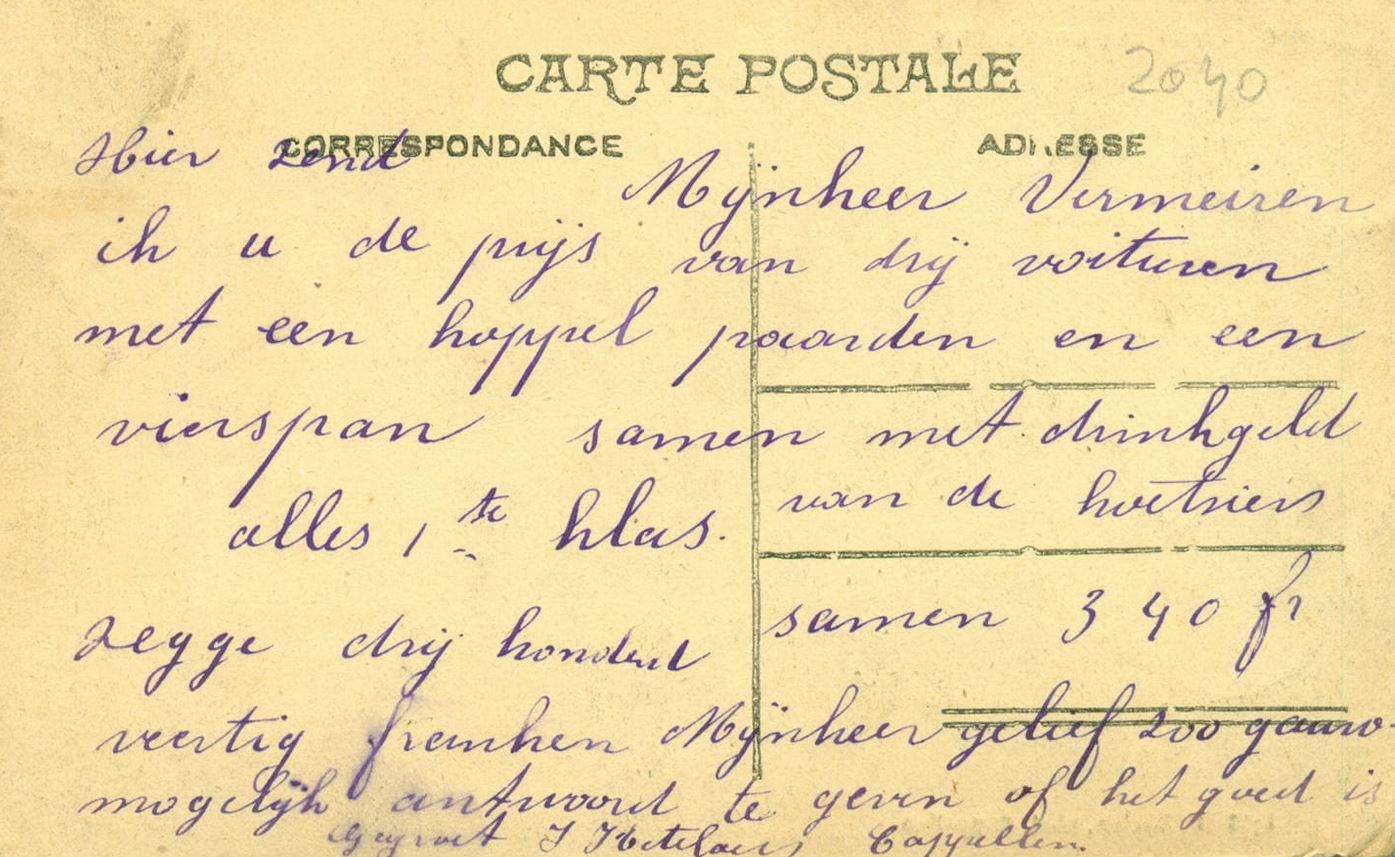 CARTE POSTALE 2040
CORRESPONDANCE ADRESSE
Mijnheer Vermeiren
Hier zend
ik u de prijs van drij voituren
met een koppel paarden en een
vierspan samen met drinkgeld
van de koetsiers
alles 1ste klas.
samen 340 fr
zegge drij honderd
veertig franken Mijnheer gelief zoo gauw
mogelijk antwoord te geven of het goed is
Gegroet J Ketelaers Cappellen